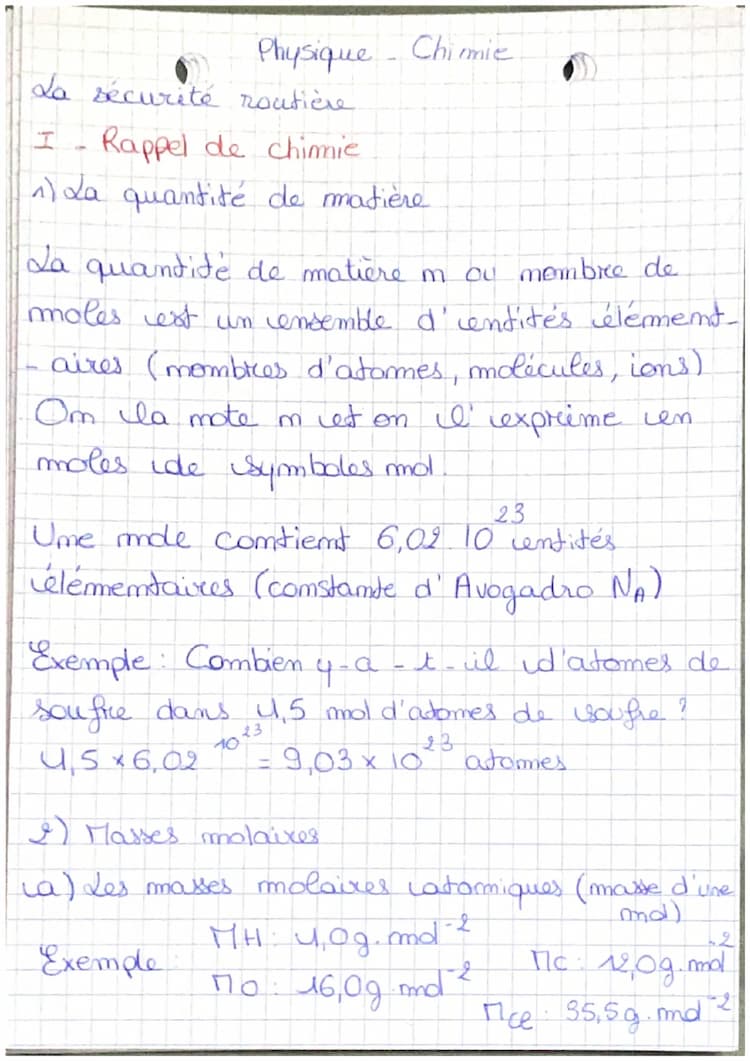 Physique - Chimie
La sécurité routière
I - Rappel de chimie
1) La quantité de matière
La quantité de matière n ou nombre de
moles est un ensemble d'entités élément-
- aires (nombres d'atomes, molécules, ions)
On la note n et on l'exprime en
moles de symboles mol.
Une mole contient 6,02.10²³ entités
élémentaires (constante d'Avogadro NA)
Exemple : Combien y-a-t-il d'atomes de
soufre dans 1,5 mol d'atomes de soufre ?
1,5 × 6,02 10²³ = 9,03 × 10²³ atomes
2) Masses molaires
a) Les masses molaires atomiques (masse d'une
mol)
Exemple : MH : 1,0g.mol⁻² MC : 12,0g.mol⁻²
MO : 16,0g.mol⁻² MCl : 35,5g.mol⁻²